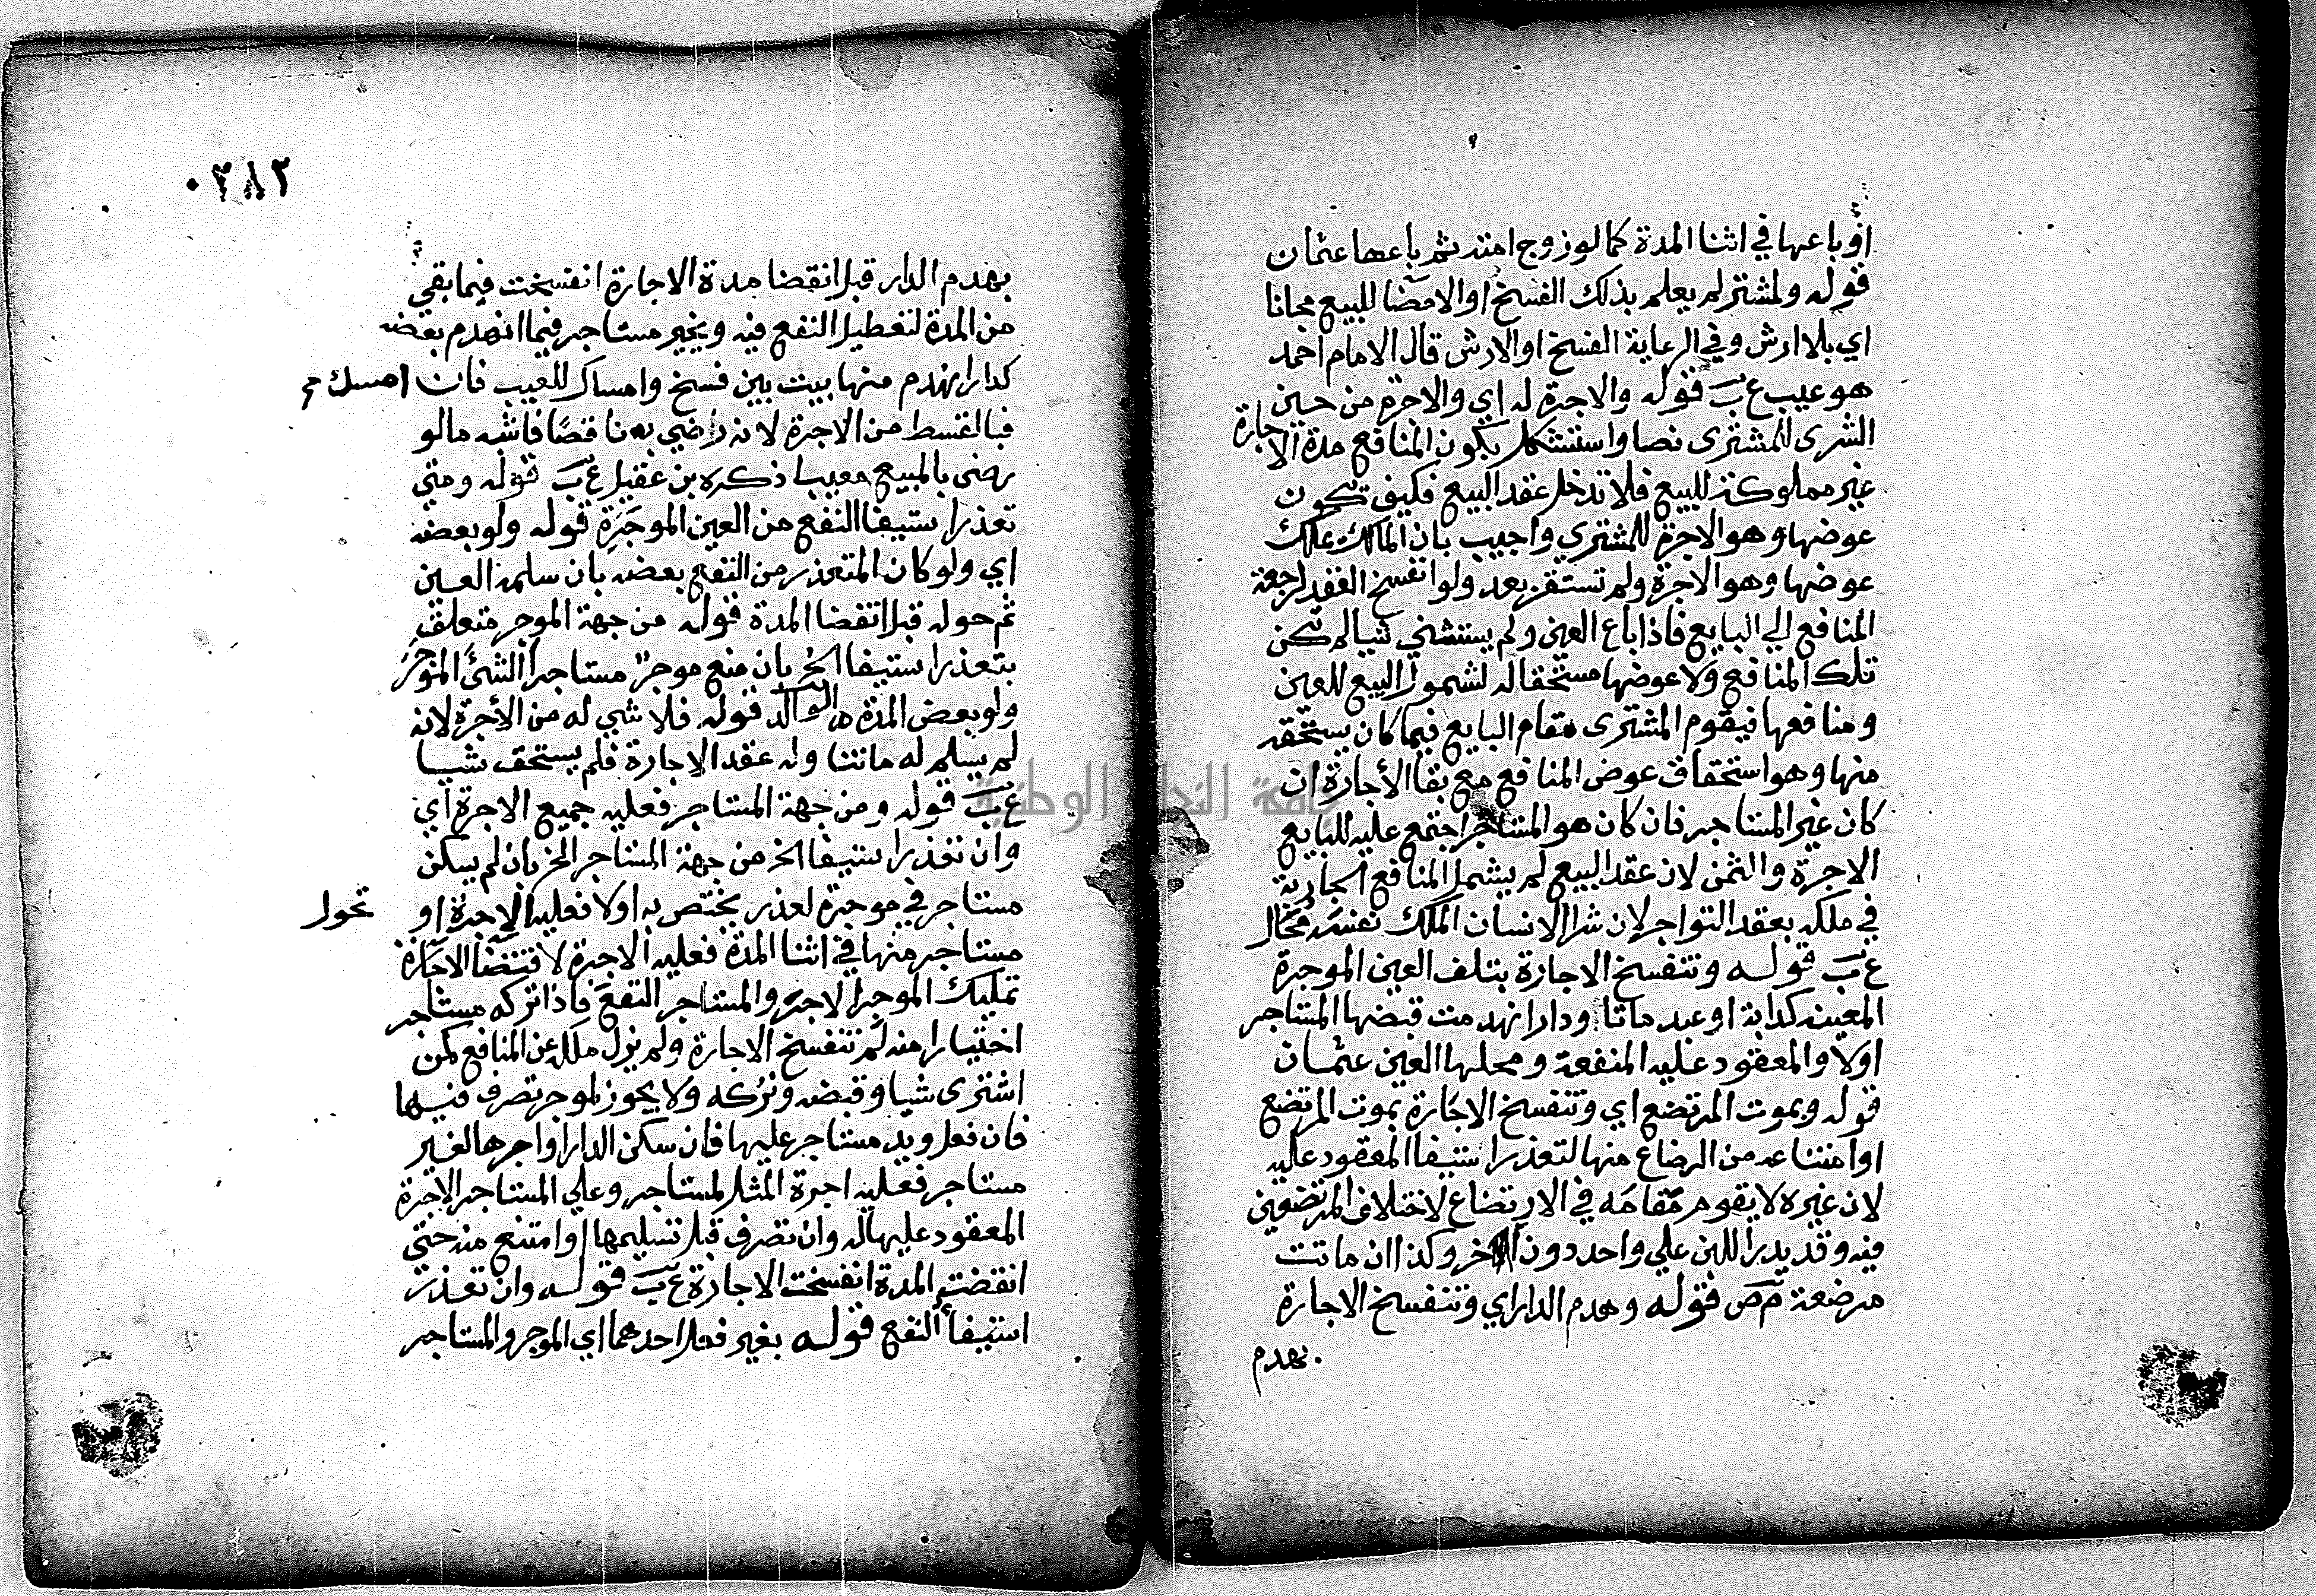 او باعها في اثنا المدة كما لو زوج امته ثم باعها عثمان
قوله ولمشتر لم يعلم بذلك الفسخ او الامضا للبيع مجانا
اي بلا ارش وفي الرعاية الفسخ او الارش قال الامام احمد
هو عيب ع ب قوله والاجرة له اي والاجرة من حين
الشرى للمشترى نصا واستشكل بكون المنافع مدة الاجارة
غير مملوكة للبيع فلا تدخل عقد البيع فكيف تكون
عوضها وهو الاجرة للمشتري واجيب بان المالك ملك
عوضها وهو الاجرة ولم تستقر بعد ولو انفسخ العقد لرجعة
المنافع الي البايع فاذا باع العين ولم يستثني شيا لم تكن
تلك المنافع ولا عوضها مستحقا له لشمول البيع للعين
ومنافعها فيقوم المشترى مقام البايع فيما كان يستحقه
منها وهو استحقاق عوض المنافع مع بقا الأجارة ان
كان غير المستاجر فان كان هو المستاجر اجتمع عليه للبايع
الاجرة والثمن لان عقد البيع لم يشمل المنافع الجارية
في ملكه بعقد التواجر لان شرا الانسان الملك نفسه محال
ع ب قوله وتنفسخ الاجارة بتلف العين الموجرة
المعينه كدابة او عبد ماتا ودار انهدمت قبضها المستاجر
اولا والمعقود عليه المنفعة ومحلها العين عثمان
قوله وبموت المرتضع اي وتنفسخ الاجارة بموت المرتضع
او امتناعه من الرضاع منها لتعذر استيفا المعقود عليه
لان غيره لا يقوم مقامه في الارتضاع لاختلاف المرتضعين
فيه وقد يدر اللبن علي واحد دون الاخر وكذا ان ماتت
مرضعة م ص قوله وهدم الدار اي وتنفسخ الاجارة
بهدم
٠٣٨٢
بهدم الدار قبل انقضا مدة الاجارة انفسخت فيما بقي
من المدة لتعطيل النفع فيه ويخير مستاجر فيما انهدم بعضه
كدار انهدم منها بيت بين فسخ وامساك للعيب فان امسك
فبالقسط من الاجرة لانه رضي به ناقصا فاشبه ما لو
رضى بالمبيع معيبا ذكره بن عقيل ع ب قوله ومتي
تعذر استيفا النفع من العين الموجرة قوله ولو بعضه
اي ولو كان المتعذر من النفع بعضه بان سلمه العين
ثم حوله قبل انقضا المدة قوله من جهة الموجر متعلق
بتعذر استيفا الخ بان منع موجر مستاجرا الشئ الموجر
ولو بعض المدة م الوالد قوله فلا شي له من الأجرة لانه
لم يسلم له ماتنا وله عقد الاجارة فلم يستحق شيا
ع ب قوله ومن جهة المستاجر فعليه جميع الاجرة اي
وان تعذر استيفا الخ من جهة المستاجر الخ بان لم يسكن
مستاجر في موجرة لعذر يختص به اولا فعليه الاجرة او تحول
مستاجر منها في اثنا المدة فعليه الاجرة لاقتضا الاجارة
تمليك الموجر الاجرة والمستاجر النفع فاذا تركه مستاجر
اختيارا منه لم تنفسخ الاجارة ولم يزل ملكه عن المنافع كمن
اشترى شيا وقبضه وتركه ولا يجوز لموجر تصرف فيها
فان فعل ويد مستاجر عليها فان سكن الدار او اجرها لغير
مستاجر فعليه اجرة المثل لمستاجر وعلي المستاجر الاجرة
المعقود عليها له وان تصرف قبل تسليمها او امتنع منه حتي
انقضت المدة انفسخت الاجارة ع ب قوله وان تعذر
استيفا النفع قوله بغير فعل احدهما اي الموجر والمستاجر
جامعة النجاح الوطنية